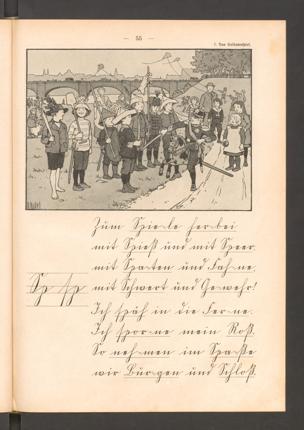 — 55 —
7. Das Soldatenspiel.
Zum Spie-le her-bei
mit Spieß und mit Speer,
mit Spa-ten und Fah-ne,
Sp sp mit Schwert und Ge-wehr!
Ich späh in die Fer-ne.
Ich spor-ne mein Roß.
So neh-men im Spa-ße
wir Bur-gen und Schloß.